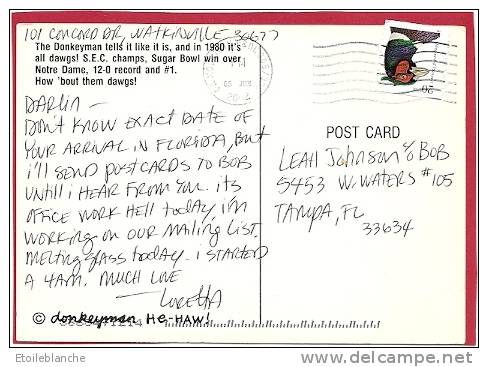 101 CONCORD DR, WATKINVILLE 30677
The Donkeyman tells it like it is, and in 1980 it's
all dawgs! S.E.C. champs, Sugar Bowl win over
Notre Dame, 12-0 record and #1.
How 'bout them dawgs!
DARLIN —
DON'T KNOW EXACT DATE OF
YOUR ARRIVAL IN FLORIDA, but
i'll SEND POSTCARDS TO BOB
UNTILL i HEAR FROM YOU. its
OFFICE WORK HELL today, i'm
WORKING ON OUR MAILING LIST.
MELTING glass today - i STARTED
A 4AM. MUCH LOVE
— LORETTA
© donkeyman HE-HAW!
POST CARD
LEAH Johnson c/o BOB
5453 W. WATERS #105
TAMPA, FL
33634
20
Etoileblanche
http://www.delcampe.net